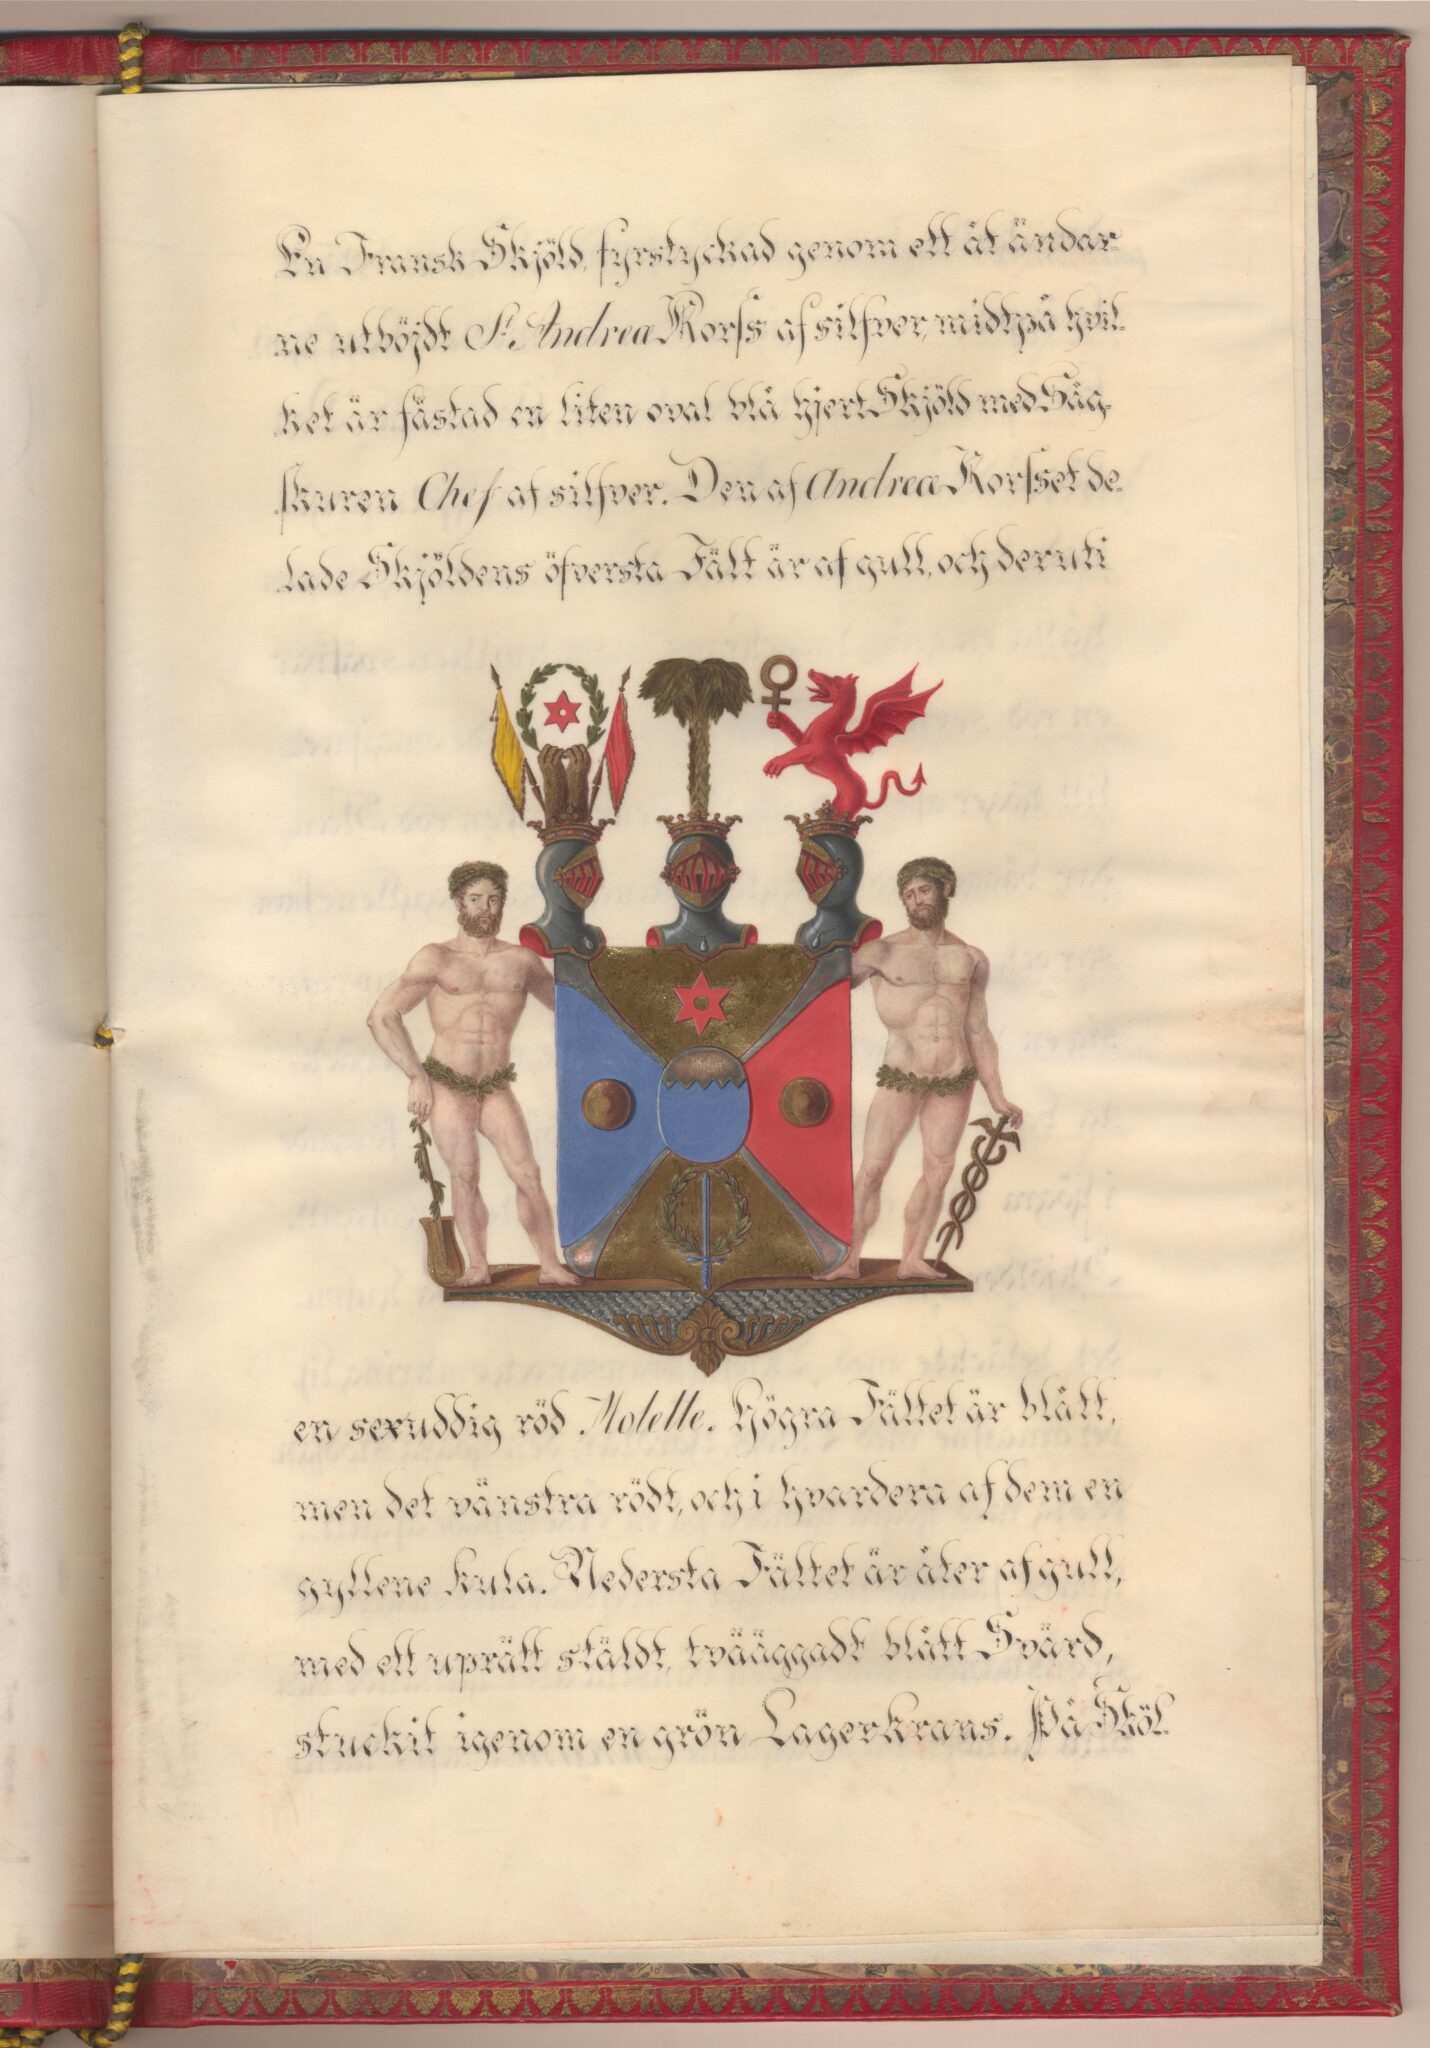 En Fransk Skjöld, fyrstyckad genom ett åt ändar-
ne utböjdt St. Andreæ Korss af silfver, midtpå hvil-
ket är fästad en liten oval blå hjert Skjöld med Såg-
skuren Chef af silfver. Den af Andreæ Korsset de-
lade Skjöldens öfversta Fält är af gull, och deruti
en sexuddig röd Molette. Högra Fältet är blått,
men det vänstra rödt, och i hvardera af dem en
gyllene kula. Nedersta Fältet är åter af gull,
med ett uprätt stäldt, tvääggadt blått Svärd,
stuckit igenom en grön Lagerkrans. På Sköl-